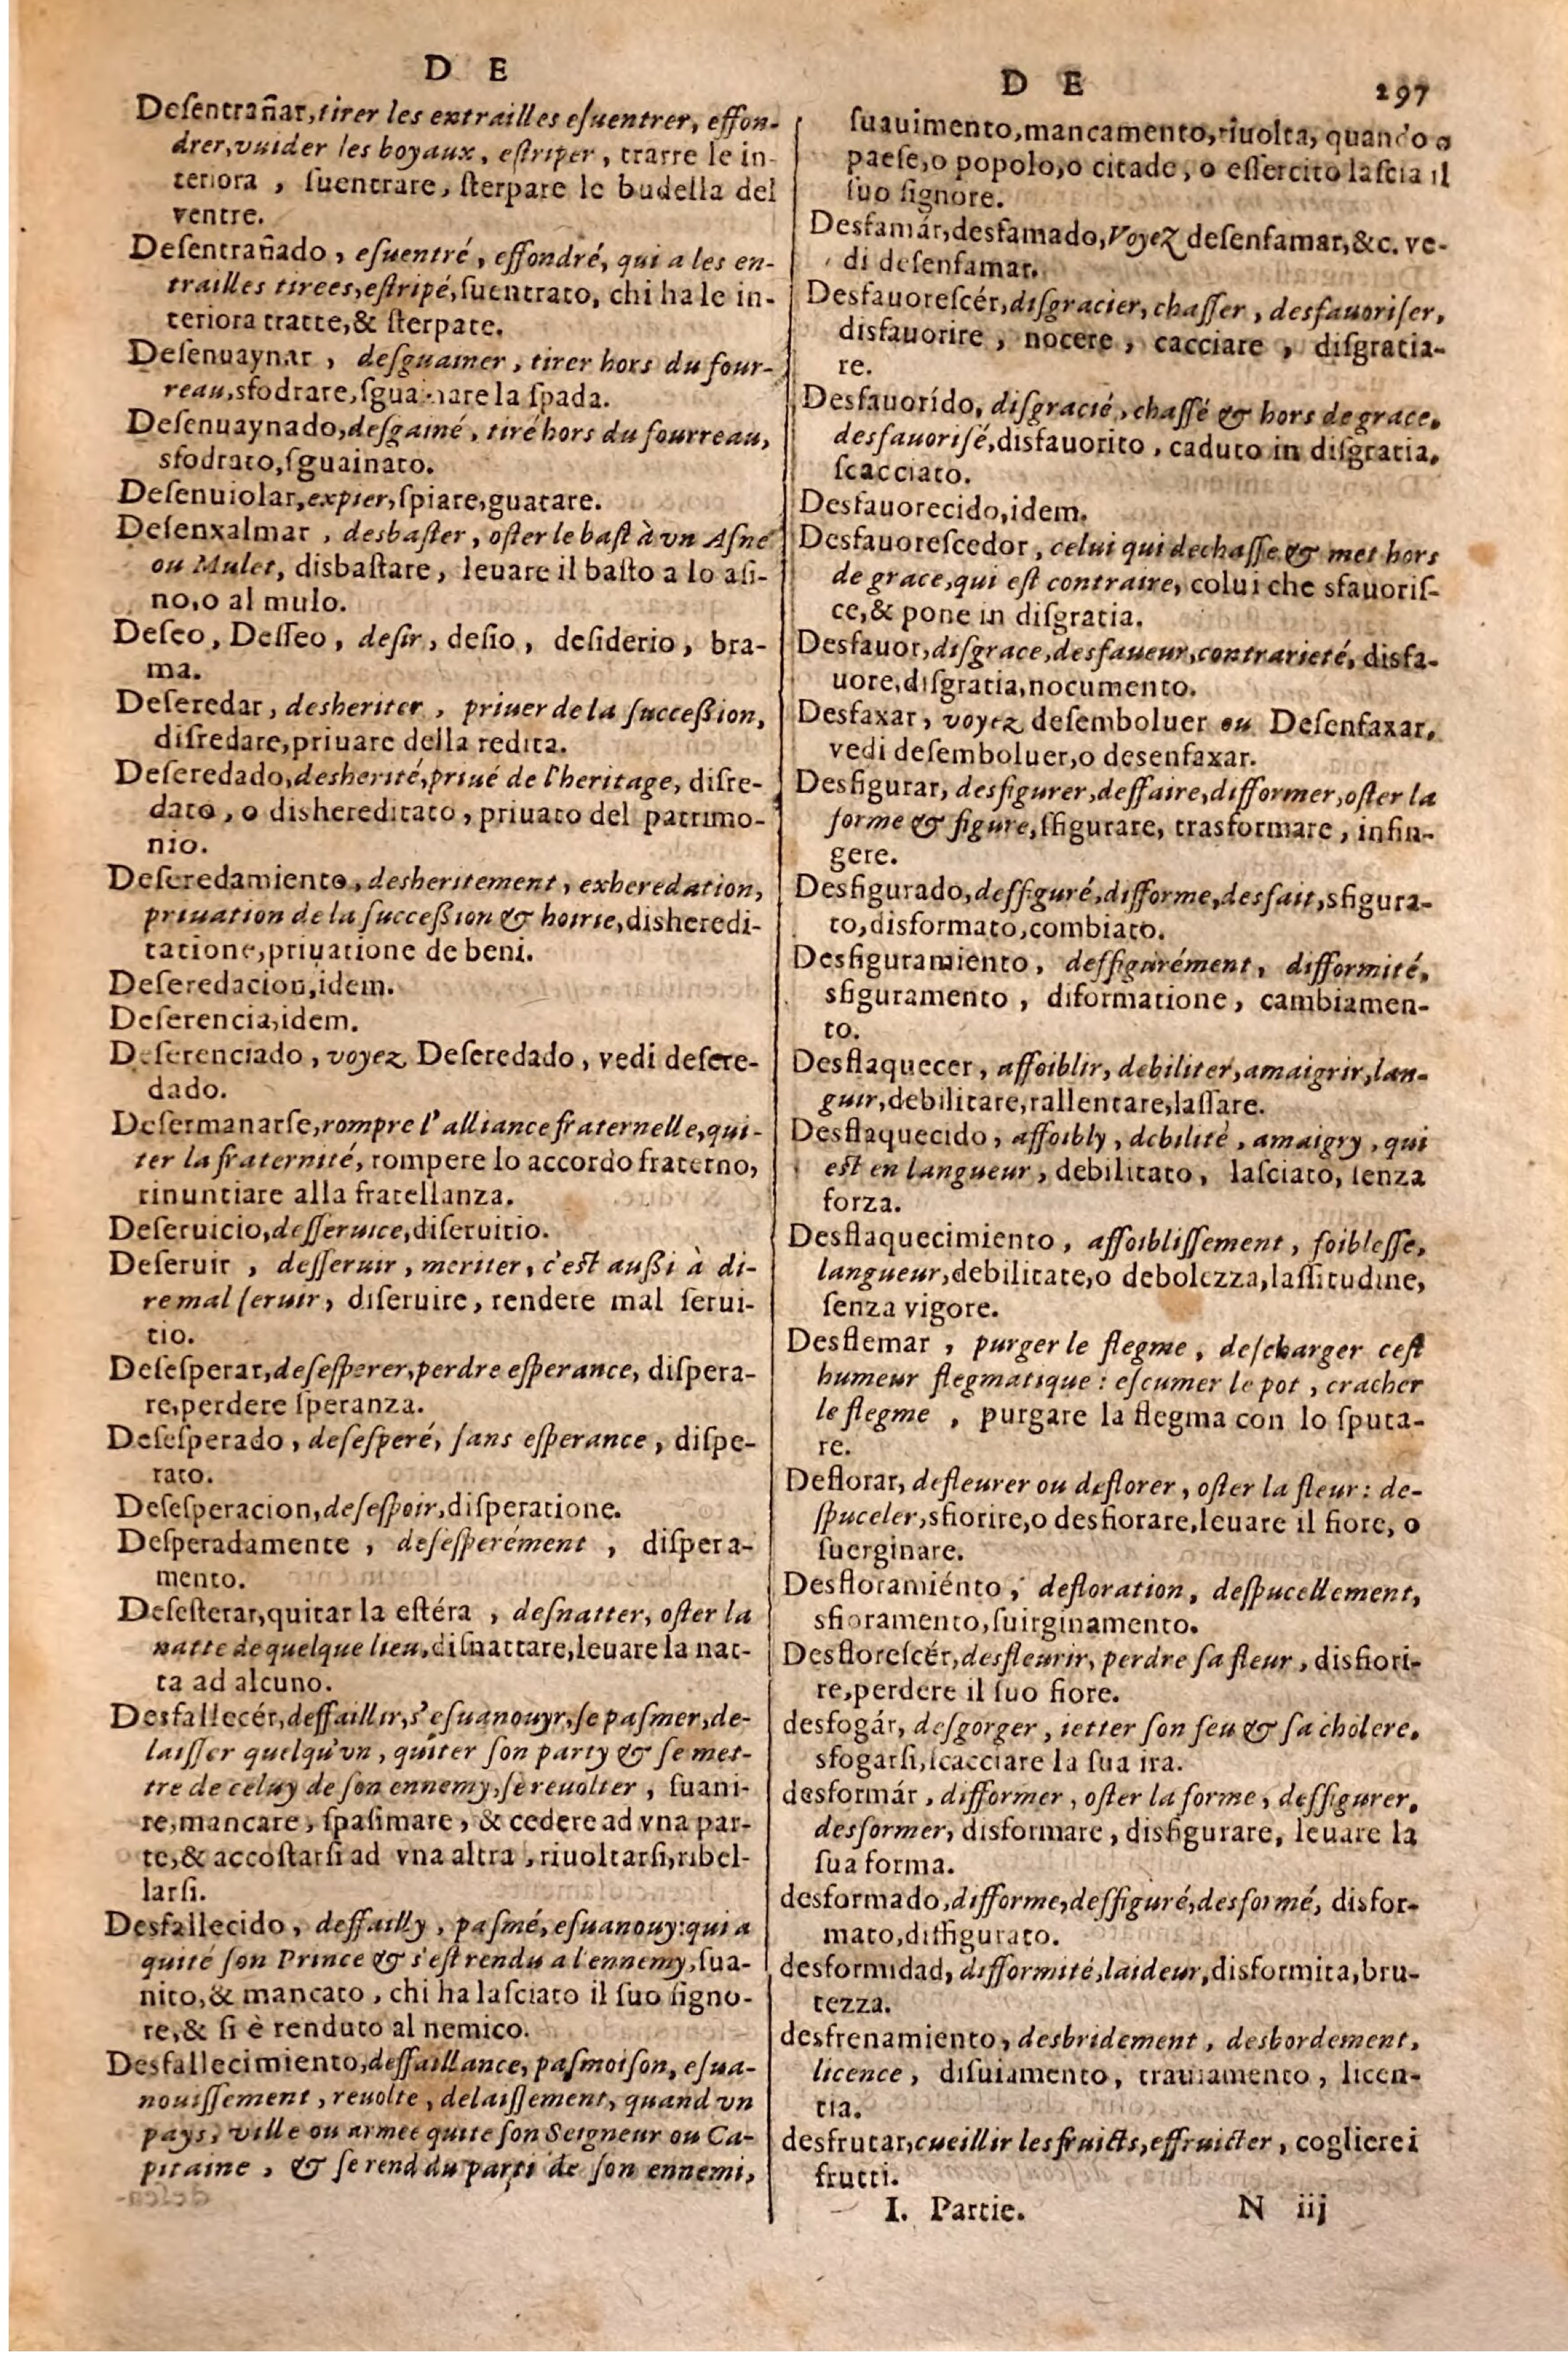 D E
Deſentrañar, tirer les extrailles eſuentrer, effon-
drer, vuider les boyaux, eſtriper, trarre le in-
teriora, ſuentrare, ſterpare le budella del
ventre.
Deſentrañado, eſuentré, effondré, qui a les en-
trailles tirees, eſtripé, ſuentrato, chi ha le in-
teriora tratte, & ſterpate.
Deſenuaynar, deſguainer, tirer hors du four-
reau, sfodrare, ſguainare la ſpada.
Deſenuaynado, deſgainé, tiré hors du fourreau,
sfodrato, ſguainato.
Deſenuiolar, expier, ſpiare, guatare.
Deſenxalmar, desbaſter, oſter le baſt à vn Aſne
ou Mulet, disbaſtare, leuare il baſto a lo aſi-
no, o al mulo.
Deſeo, Deſſeo, deſir, deſio, deſiderio, bra-
ma.
Deſeredar, desheriter, priuer de la ſucceßion,
diſredare, priuare della redita.
Deſeredado, desherité, priué de l'heritage, diſre-
dato, o dishereditato, priuato del patrimo-
nio.
Deſeredamiento, desheritement, exheredation,
priuation de la ſucceßion & hoirie, disheredi-
tatione, priuatione de beni.
Deſeredacion, idem.
Deſerencia, idem.
Deſerenciado, voyez Deſeredado, vedi deſere-
dado.
Deſermanarſe, rompre l'alliance fraternelle, qui-
ter la fraternité, rompere lo accordo fraterno,
rinuntiare alla fratellanza.
Deſeruicio, deſſeruice, diſeruitio.
Deſeruir, deſſeruir, meriter, c'eſt außi à di-
re mal ſeruir, diſeruire, rendere mal ſerui-
tio.
Deſeſperar, deſeſperer, perdre eſperance, diſpera-
re, perdere ſperanza.
Deſeſperado, deſeſperé, ſans eſperance, diſpe-
rato.
Deſeſperacion, deſeſpoir, diſperatione.
Deſperadamente, deſeſperément, diſpera-
mento.
Deſeſterar, quitar la eſtéra, deſnatter, oſter la
natte de quelque lieu, diſnattare, leuare la nat-
ta ad alcuno.
Desfallecér, deffaillir, s'eſuanouyr, ſe paſmer, de-
laiſſer quelqu'vn, quiter ſon party & ſe met-
tre de celuy de ſon ennemy, ſe reuolter, ſuani-
re, mancare, ſpaſimare, & cedere ad vna par-
te, & accoſtarſi ad vna altra, riuoltarſi, ribel-
larſi.
Desfallecido, deffailly, paſmé, eſuanouy: qui a
quité ſon Prince & s'eſt rendu a l'ennemy, ſua-
nito, & mancato, chi ha laſciato il ſuo ſigno-
re, & ſi è renduto al nemico.
Desfallecimiento, deffaillance, paſmoiſon, eſua-
nouiſſement, reuolte, delaiſſement, quand vn
pays, ville ou armee quite ſon Seigneur ou Ca-
pitaine, & ſe rend du parti de ſon ennemi,
D E 297
ſuauimento, mancamento, riuolta, quando o
paeſe, o popolo, o citade, o eſſercito laſcia il
ſuo ſignore.
Desfamár, desfamado, Voyez deſenfamar, &c. ve-
di deſenfamar.
Desfauoreſcér, diſgracier, chaſſer, desfauoriſer,
disfauorire, nocere, cacciare, diſgratia-
re.
Desfauorído, diſgracié, chaſſé & hors de grace,
desfauoriſé, disfauorito, caduto in diſgratia,
ſcacciato.
Desfauorecido, idem.
Desfauoreſcedor, celui qui dechaſſe & met hors
de grace, qui eſt contraire, colui che sfauoriſ-
ce, & pone in diſgratia.
Desfauor, diſgrace, desfaueur, contrarieté, disfa-
uore, diſgratia, nocumento.
Desfaxar, voyez deſemboluer ou Deſenfaxar,
vedi deſemboluer, o desenfaxar.
Desfigurar, desfigurer, deffaire, difformer, oſter la
forme & figure, ſfigurare, trasformare, infin-
gere.
Desfigurado, deffiguré, difforme, desfait, sfigura-
to, disformato, combiato.
Desfiguramiento, deffigurément, difformité,
sfiguramento, diformatione, cambiamen-
to.
Desflaquecer, affoiblir, debiliter, amaigrir, lan-
guir, debilitare, rallentare, laſſare.
Desflaquecido, affoibly, debilité, amaigry, qui
eſt en langueur, debilitato, laſciato, ſenza
forza.
Desflaquecimiento, affoibliſſement, foibleſſe,
langueur, debilitate, o debolezza, laſſitudine,
ſenza vigore.
Desflemar, purger le flegme, deſcharger ceſt
humeur flegmatique: eſcumer le pot, cracher
le flegme, purgare la flegma con lo ſputa-
re.
Deflorar, defleurer ou deflorer, oſter la fleur: de-
ſpuceler, sfiorire, o desfiorare, leuare il fiore, o
ſuerginare.
Desfloramiénto, defloration, deſpucellement,
sfioramento, ſuirginamento.
Desfloreſcér, desfleurir, perdre ſa fleur, disfiori-
re, perdere il ſuo fiore.
desfogár, deſgorger, ietter ſon feu & ſa cholere,
sfogarſi, ſcacciare la ſua ira.
desformár, difformer, oſter la forme, deffigurer,
desformer, disformare, disfigurare, leuare la
ſua forma.
desformado, difforme, deffiguré, desformé, disfor-
mato, diffigurato.
desformidad, difformité, laideur, disformita, bru-
tezza.
desfrenamiento, desbridement, desbordement,
licence, diſuiamento, trauiamento, licen-
tia.
desfrutar, cueillir les fruicts, effruicter, coglierei
frutti.
I. Partie. N iij